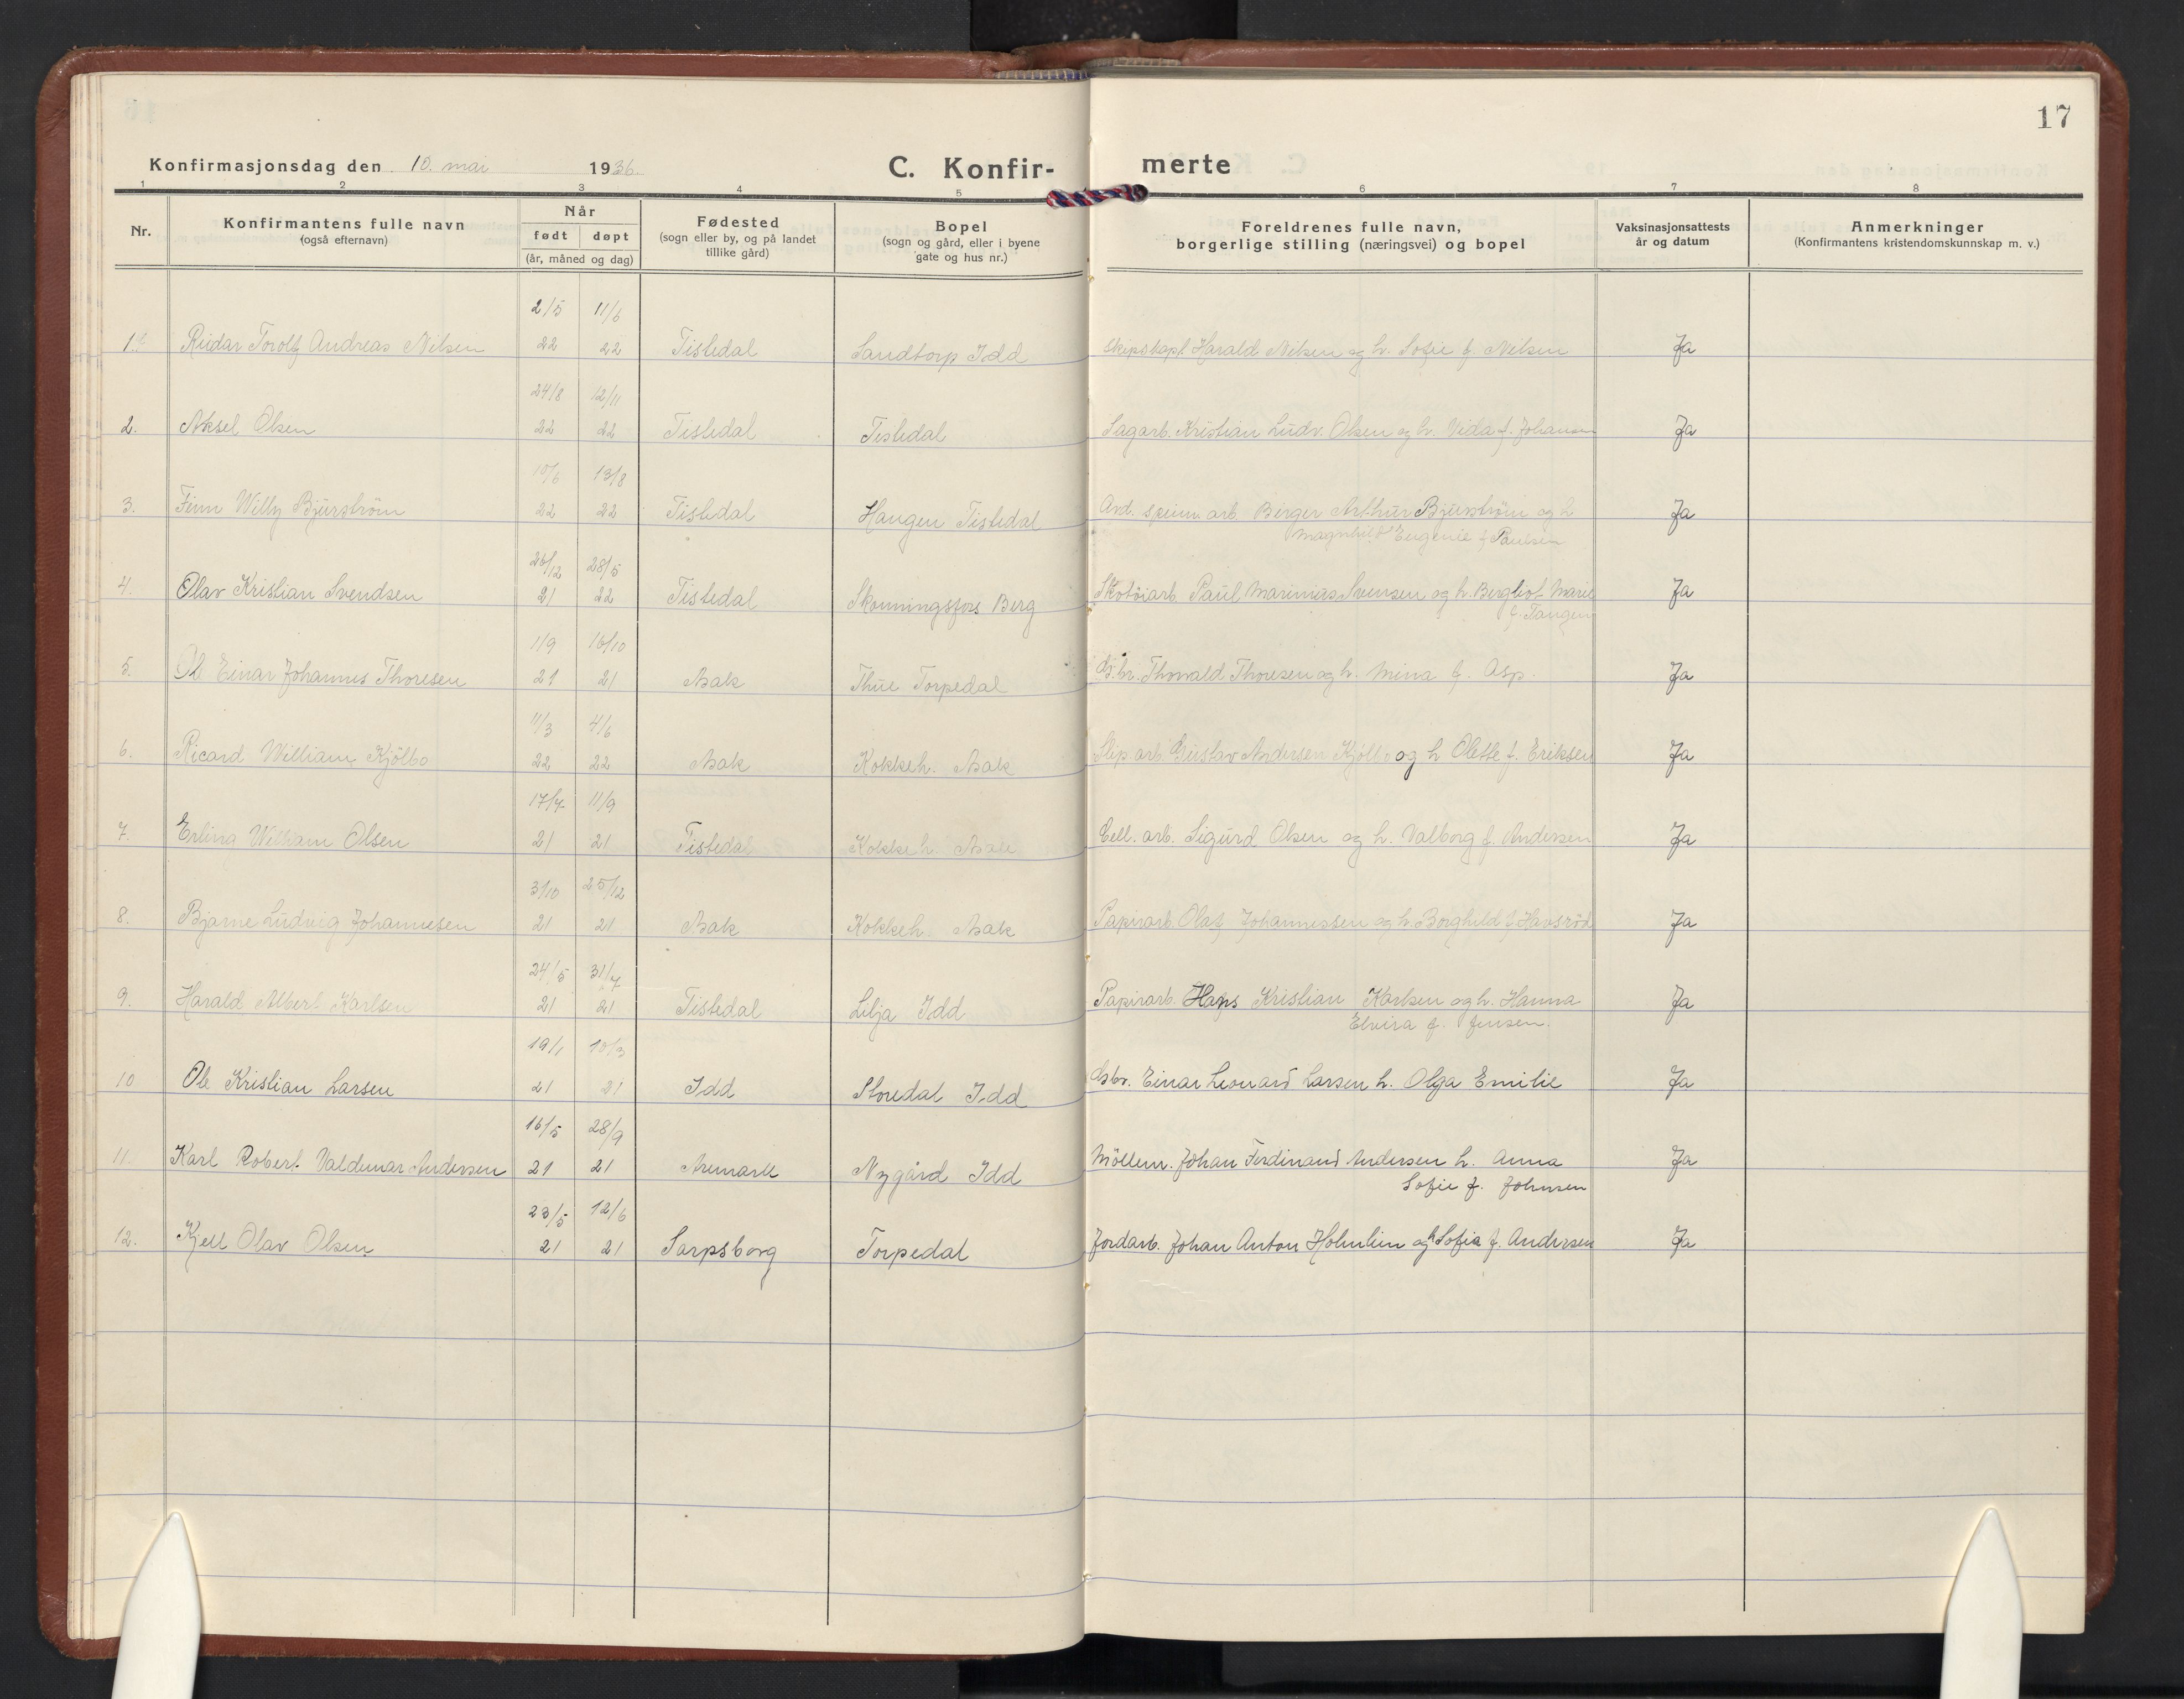 17
Konfirmasjonsdag den 10. mai 1936. C. Konfir- merte
1 2 3 4 5 6 7 8
Nr. Konfirmantens fulle navn (også efternavn) Når født døpt (år, måned og dag) Fødested (sogn eller by, og på landet tillike gård) Bopel (sogn og gård, eller i byene gate og hus nr.) Foreldrenes fulle navn, borgerlige stilling (næringsvei) og bopel Vaksinasjonsattests år og datum Anmerkninger (Konfirmantens kristendomskunnskap m. v.)
2/5 11/6
1. Reidar Torolf Andreas Nilsen 22 22 Tistedal Sandtorp Idd Skipskapt. Harald Nilsen og h. Sofie f. Nelsen Ja
24/8 12/11
2. Aksel Olsen 22 22 Tistedal Tistedal Sagarb. Kristian Ludv. Olsen og h. Vida f. Johansen Ja
10/6 13/8
3. Finn Willy Bjurstrøm 22 22 Tistedal Haugen Tistedal Arb. spinn. arb. Birger Arthur Bjurstrøm og h
Magnhild Eugenie f. Paulsen Ja
26/12 28/5
4. Olav Kristian Svendsen 21 22 Tistedal Skonningsfoss Berg Skotøiarb. Paul Marinius Svensen og h. Bergliot Marie
f. Tangen Ja
1/9 16/10
5. Ole Einar Johannes Thoresen 21 21 Asak Thue Torpedal Gbr. Thorvald Thoresen og h. Mina f. Asp. Ja
11/3 4/6
6. Ricard William Kjölbo 22 22 Asak Kokkeh. Asak Slip.arb. Gustav Andersen Kjölbo og h Olette f. Eriksen Ja
17/7 11/9
7. Erling William Olsen 21 21 Tistedal Kokkeh. Asak Cell. arb. Sigurd Olsen og h. Valborg f. Andersen Ja
3/10 25/12
8. Bjarne Ludvig Johannesen 21 21 Asak Kokkeh. Asak Papirarb. Olaf Johannessen og h. Borghild f. Havsröd Ja
24/5 31/7
9. Harald Albert Karlsen 21 21 Tistedal Lilja Idd Papirarb. Hans Kristian Karlsen og h. Hanna
Elvira f. Jensen. Ja
19/1 10/3
10 Ole Kristian Larsen 21 21 Idd Storedal Idd Gbr. Einar Leonard Larsen h. Olga Emilie Ja
16/5 28/9
11. Karl Robert Valdemar Andersen 21 21 Aremark Nygård Idd Möllem. Johan Ferdinand Andersen h. Anna
Sofie f. Johnsen Ja
23/5 12/6
12. Kjell Olav Olsen 21 21 Sarpsborg Torpedal Jordarb. Johan Anton Holmlien og h Sofie f. Andersen Ja